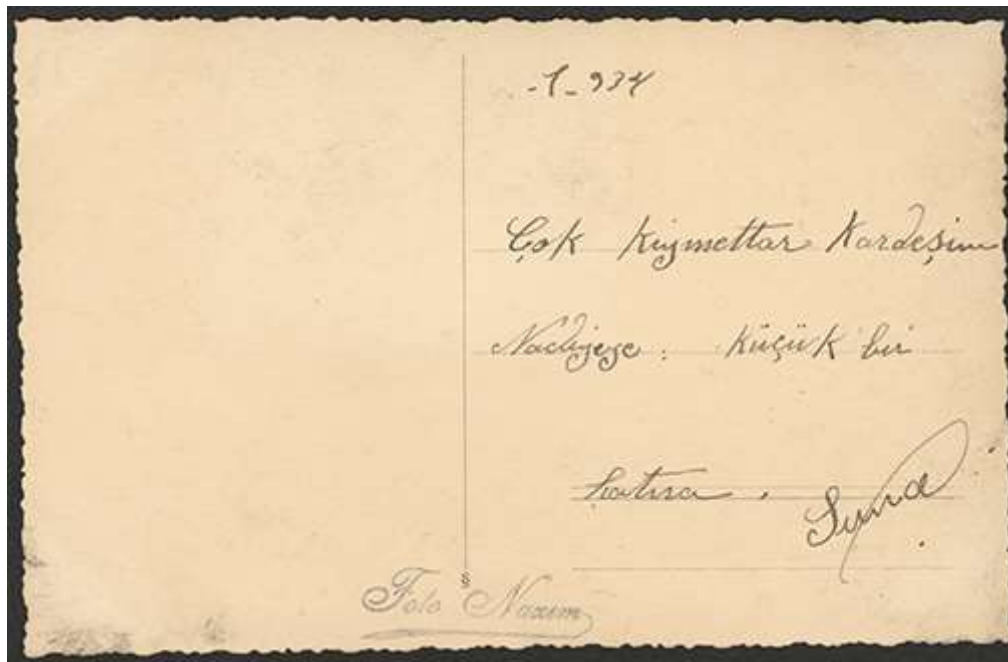 -1-934
Çok kıymettar Kardeşim
Nadiyeye : Küçük bir
hatıra .
Foto Naxım